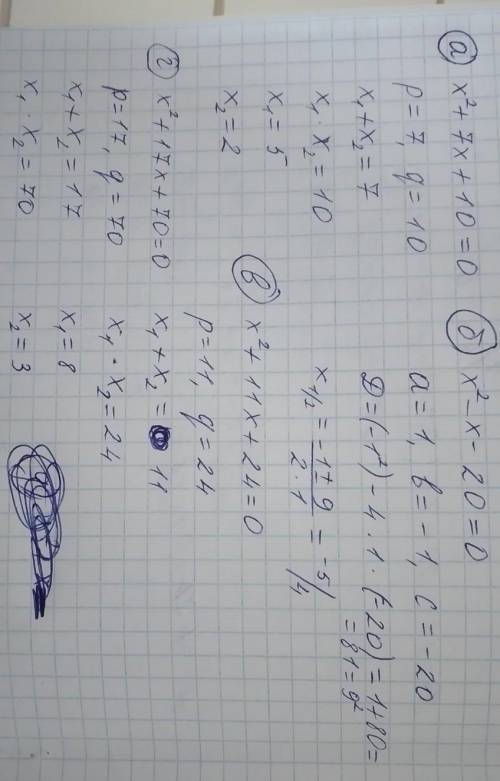 а) x² + 7x + 10 = 0
p = 7, q = 10
x₁ + x₂ = 7
x₁ · x₂ = 10
x₁ = 5
x₂ = 2
б) x² - x - 20 = 0
a = 1, b = -1, c = -20
D = (-1²) - 4 · 1 · (-20) = 1 + 80 =
= 81 = 9²
x₁/₂ = -1 ± 9 / 2 · 1 = -5/4
в) x² + 11x + 24 = 0
p = 11, q = 24
x₁ + x₂ = 11
x₁ · x₂ = 24
x₁ = 8
x₂ = 3
г) x² + 17x + 70 = 0
p = 17, q = 70
x₁ + x₂ = 17
x₁ · x₂ = 70